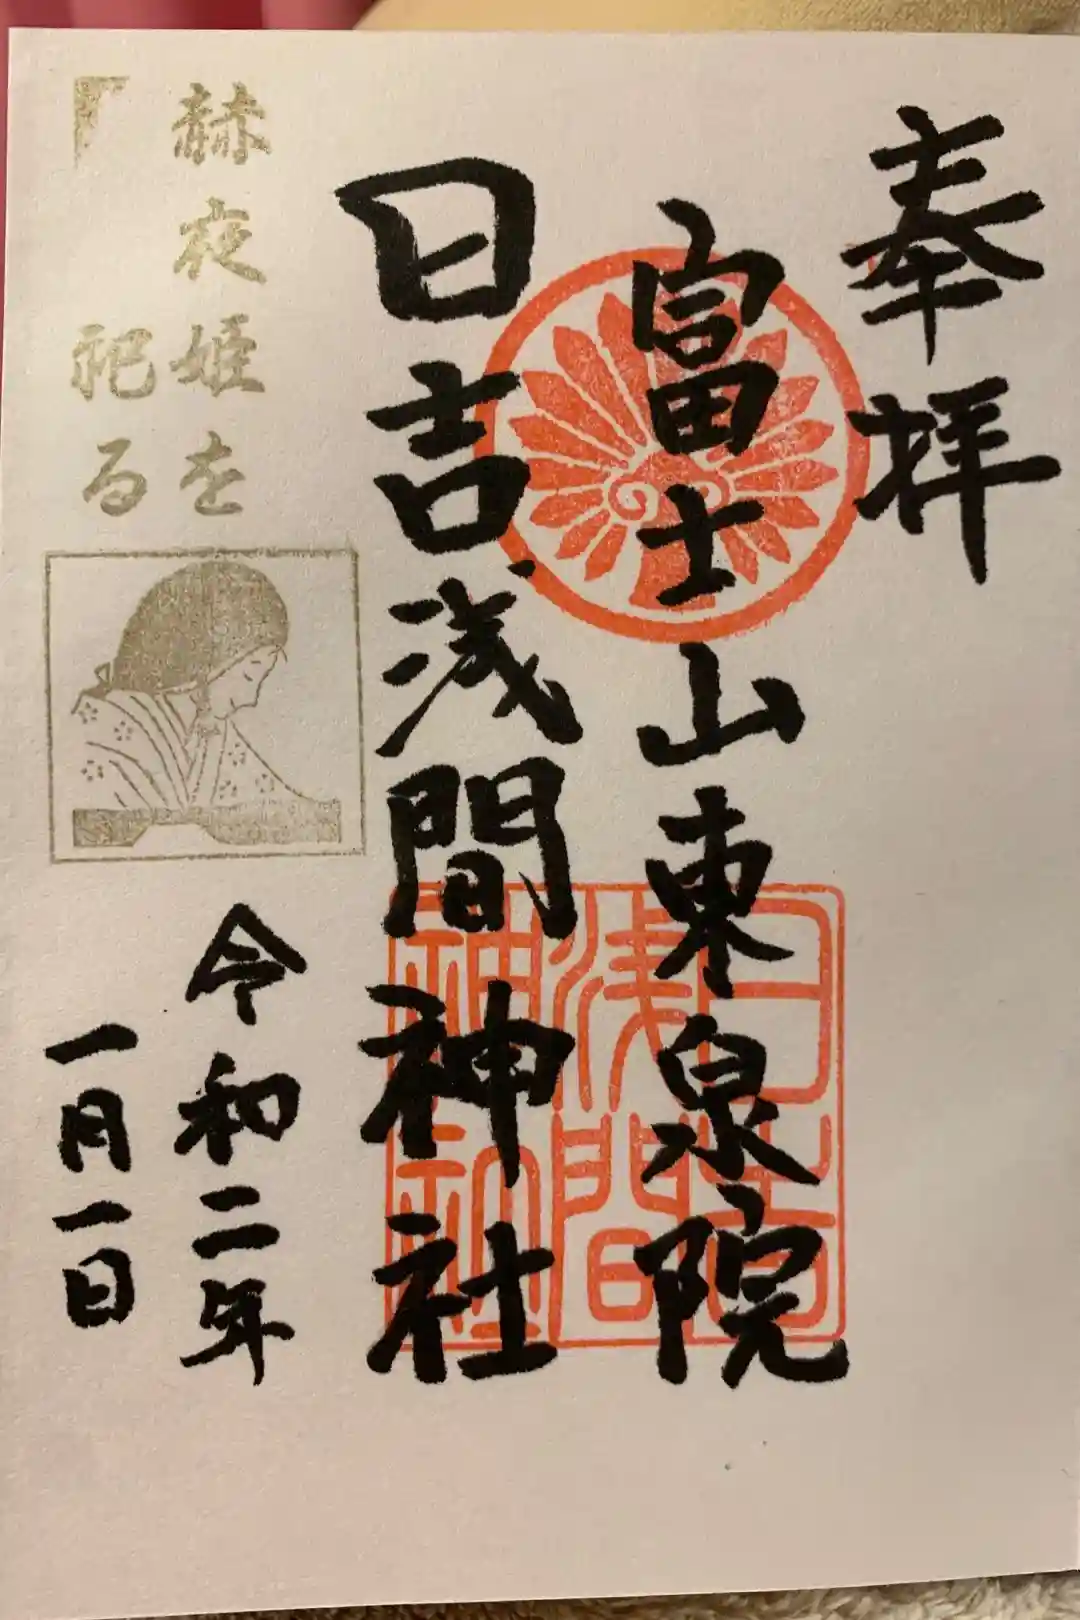 奉拝
富士山東泉院
日吉浅間神社
赫夜姫を
祀る
令和二年
一月一日
日吉
浅間
神社